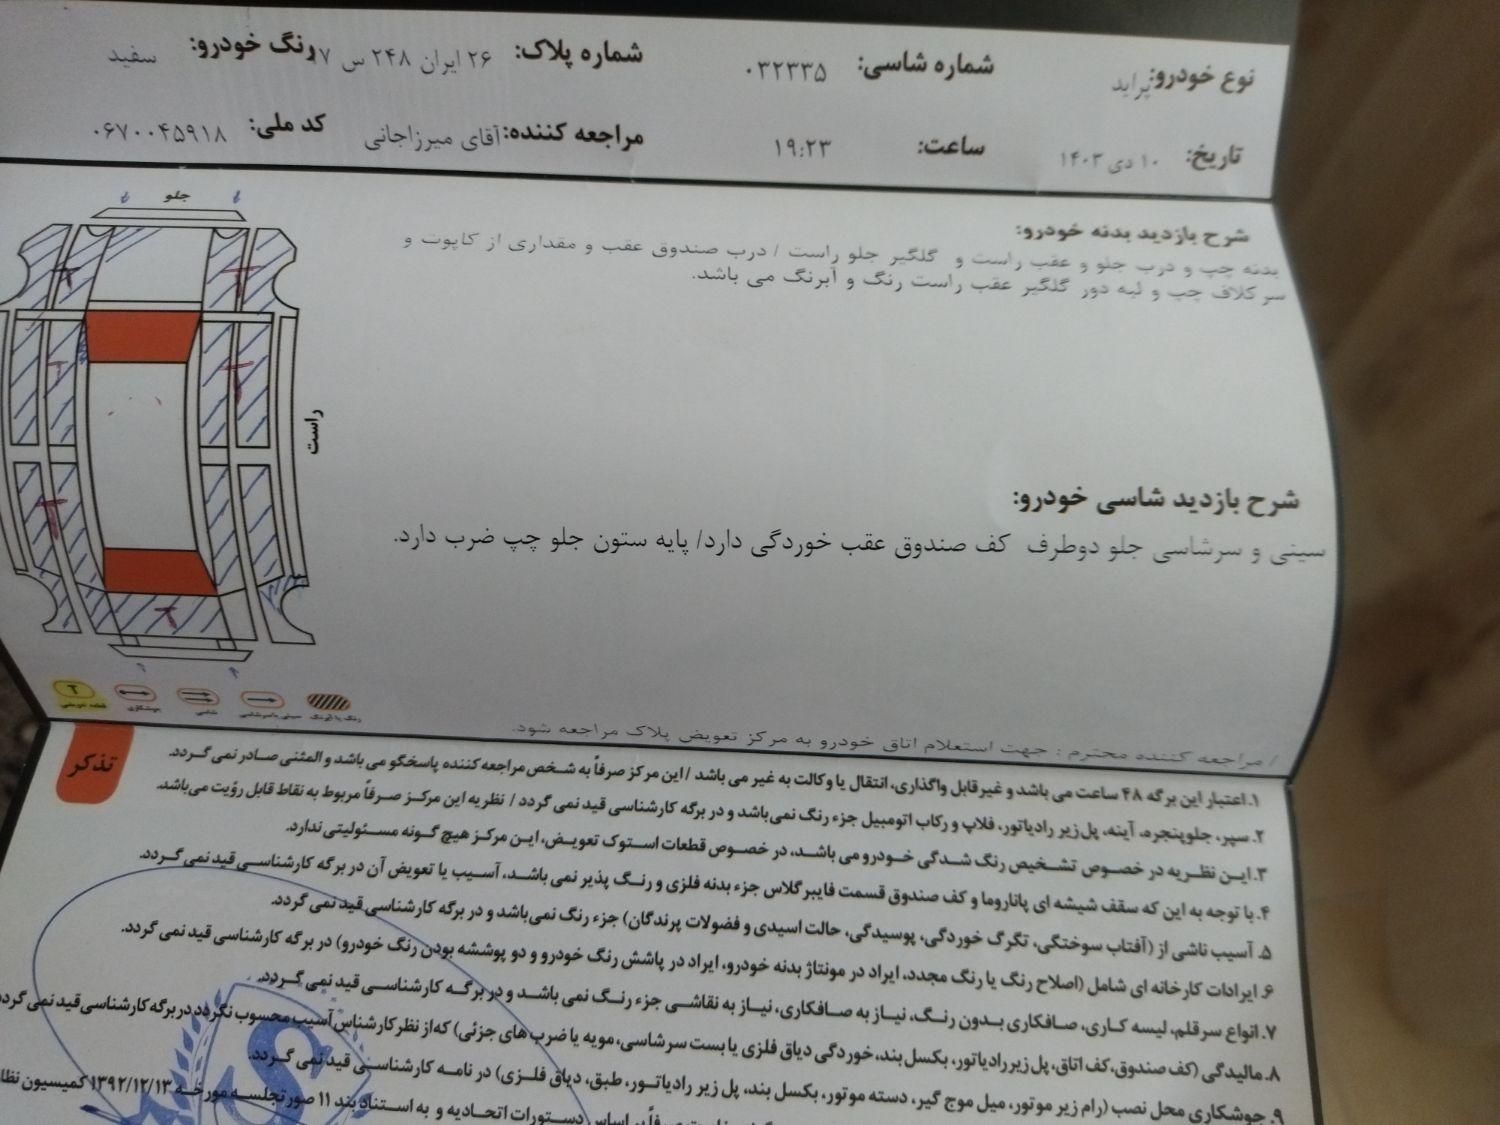 نوع خودرو: پراید شماره شاسی: ۰۳۲۳۳۵ شماره پلاک: ۲۶ ایران ۲۴۸ س ۱۷ رنگ خودرو: سفید
تاریخ: ۱۰ دی ۱۴۰۳ ساعت: ۱۹:۲۳ مراجعه کننده: آقای میرزاجانی کد ملی: ۰۶۷۰۰۴۵۹۱۸
شرح بازدید بدنه خودرو:
بدنه چپ و درب جلو و عقب راست و گلگیر جلو راست / درب صندوق عقب و مقداری از کاپوت و
سر کلاف چپ و لبه دور گلگیر عقب راست رنگ و آبرنگ می باشد.
جلو
راست
T
T
T
T
T
T
شرح بازدید شاسی خودرو:
سینی و سرشاسی جلو دوطرف کف صندوق عقب خوردگی دارد/ پایه ستون جلو چپ ضرب دارد.
رنگ یا آبرنگ
سینی یا سرشاسی
شاسی
جوشکاری
T
قطعه تعویضی
/ مراجعه کننده محترم : جهت استعلام اتاق خودرو به مرکز تعویض پلاک مراجعه شود.
تذکر
۱. اعتبار این برگه ۴۸ ساعت می باشد و غیرقابل واگذاری، انتقال یا وکالت به غیر می باشد / این مرکز صرفاً به شخص مراجعه کننده پاسخگو می باشد و المثنی صادر نمی گردد.
۲. سپر، جلوپنجره، آینه، پل زیر رادیاتور، فلاپ و رکاب اتومبیل جزء رنگ نمی‌باشد و در برگه کارشناسی قید نمی گردد / نظریه این مرکز صرفاً مربوط به نقاط قابل رؤیت می‌باشد.
۳. این نظریه در خصوص تشخیص رنگ شدگی خودرو می باشد، در خصوص قطعات استوک تعویض، این مرکز هیچ گونه مسئولیتی ندارد.
۴. با توجه به این که سقف شیشه ای پاناروما و کف صندوق قسمت فایبرگلاس جزء بدنه فلزی و رنگ پذیر نمی باشد، آسیب یا تعویض آن در برگه کارشناسی قید نمی گردد.
۵. آسیب ناشی از (آفتاب سوختگی، تگرگ خوردگی، پوسیدگی، حالت اسیدی و فضولات پرندگان) جزء رنگ نمی‌باشد و در برگه کارشناسی قید نمی گردد.
۶. ایرادات کارخانه ای شامل (اصلاح رنگ یا رنگ مجدد، ایراد در مونتاژ بدنه خودرو، ایراد در پاشش رنگ خودرو و دو پوششه بودن رنگ خودرو) در برگه کارشناسی قید نمی گردد.
۷. انواع سرقلم، لیسه کاری، صافکاری بدون رنگ، نیاز به صافکاری، نیاز به نقاشی جزء رنگ نمی باشد و در برگه کارشناسی قید نمی گردد.
۸. مالیدگی (کف صندوق، کف اتاق، پل زیر رادیاتور، بکسل بند، خوردگی دیاق فلزی یا بست سرشاسی، مویه یا ضرب های جزئی) که از نظر کارشناس آسیب محسوب نگردد در برگه کارشناسی قید نمی گردد
۹. جوشکاری محل نصب (رام زیر موتور، میل موج گیر، دسته موتور، بکسل بند، پل زیر رادیاتور، طبق، دیاق فلزی) در نامه کارشناسی قید نمی گردد.
صرفاً بر اساس دستورات اتحادیه و به استناد بند ۱۱ صورتجلسه مورخه ۱۳۹۲/۱۲/۱۳ کمیسیون